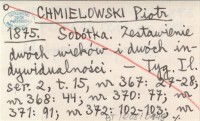 CHMIELOWSKI Piotr
1875. Sobótka. Zestawienie
dwóch wieków i dwóch in-
dywidualności. Tyg. Il.
ser. 2, t. 15, nr 367: 27-28;
nr 368: 44; nr 370: 77; nr
371: 91; nr 372: 102-103; nr